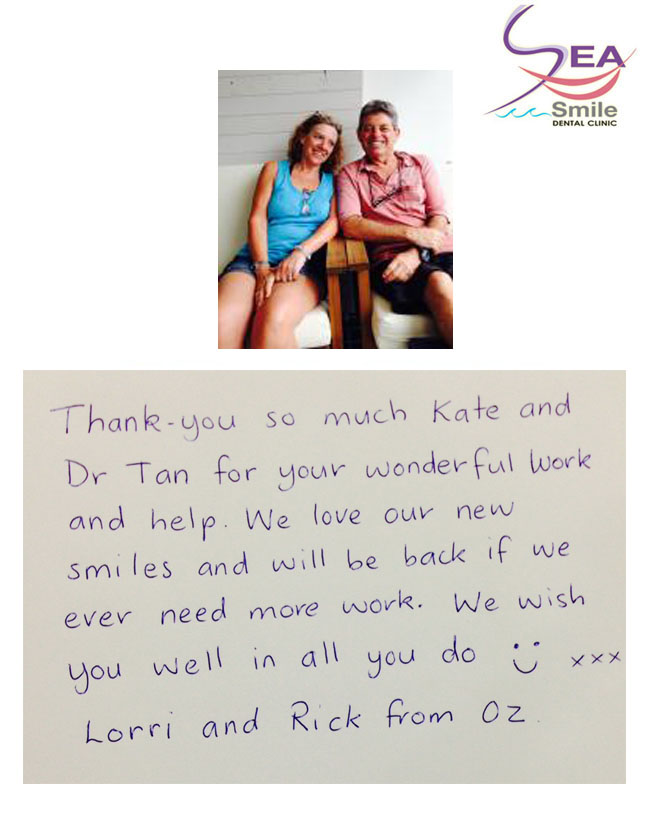 SEA
Smile
DENTAL CLINIC
Thank-you so much Kate and
Dr Tan for your wonderful work
and help. We love our new
smiles and will be back if we
ever need more work. We wish
you well in all you do xxx
Lorri and Rick from Oz.